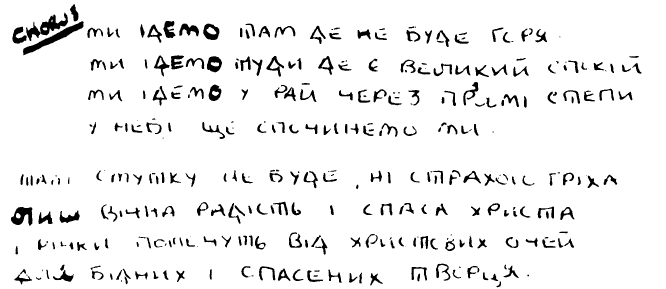 CHORUS
МИ ІДЕМО ТАМ ДЕ НЕ БУДЕ ГОРЯ.
МИ ІДЕМО ТУДИ ДЕ Є ВЕЛИКИЙ СПОКІЙ
МИ ІДЕМО У РАЙ ЧЕРЕЗ ПРЯМІ СТЕПИ
У НЕБІ ЩЕ СПОЧИНЕМО МИ.
ТАМ СМУТКУ НЕ БУДЕ, НІ СТРАХО ГРІХА
ЛИШ ВІЧНА РАДІСТЬ І СПАСА ХРИСТА
І РІЧКИ ПОПЛИЧУТЬ ВІД ХРИСТОВИХ ОЧЕЙ
ДЛЯ БІДНИХ І СПАСЕНИХ